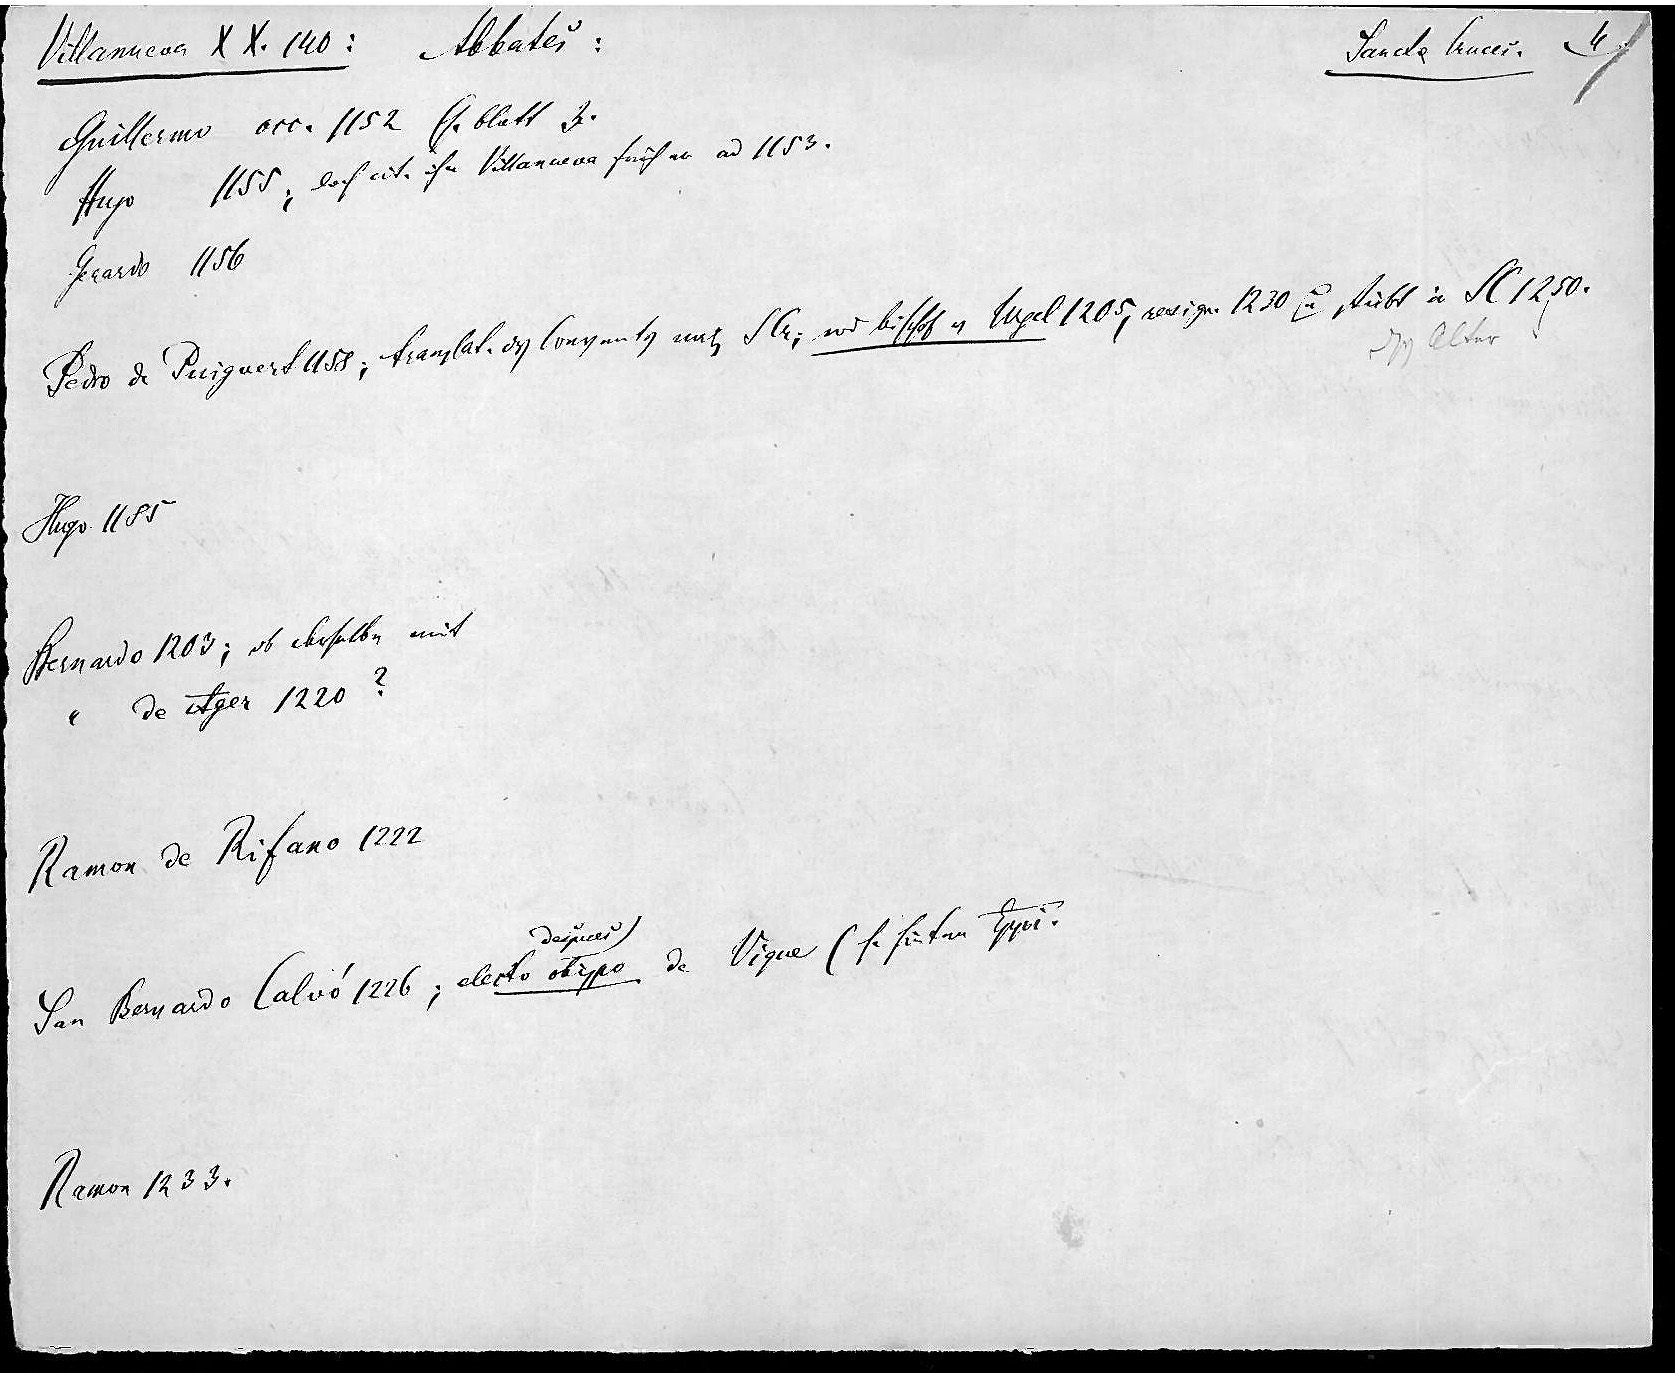 Villanueva XX. 140: Abbates: Sancta Cruces. 4
Guillermo occ. 1152 (s. blatt 3.
Hugo 1155; doch cit. ihn Villanueva früher ad 1153.
Gerardo 1156
Pedro de Puigvert 1158; translat. des Convents nach SCr; wd bischof v Urgel 1205, resign. 1230 u stirbt in SC 1250.
Alter
Hugo 1185
Bernardo 1203; ob derselbe mit
" de Ager 1220?
Ramon de Rifano 1222
despues)
San Bernardo Calvó 1226; electo obispo de Vique (s. hinten
Ramon 1233.